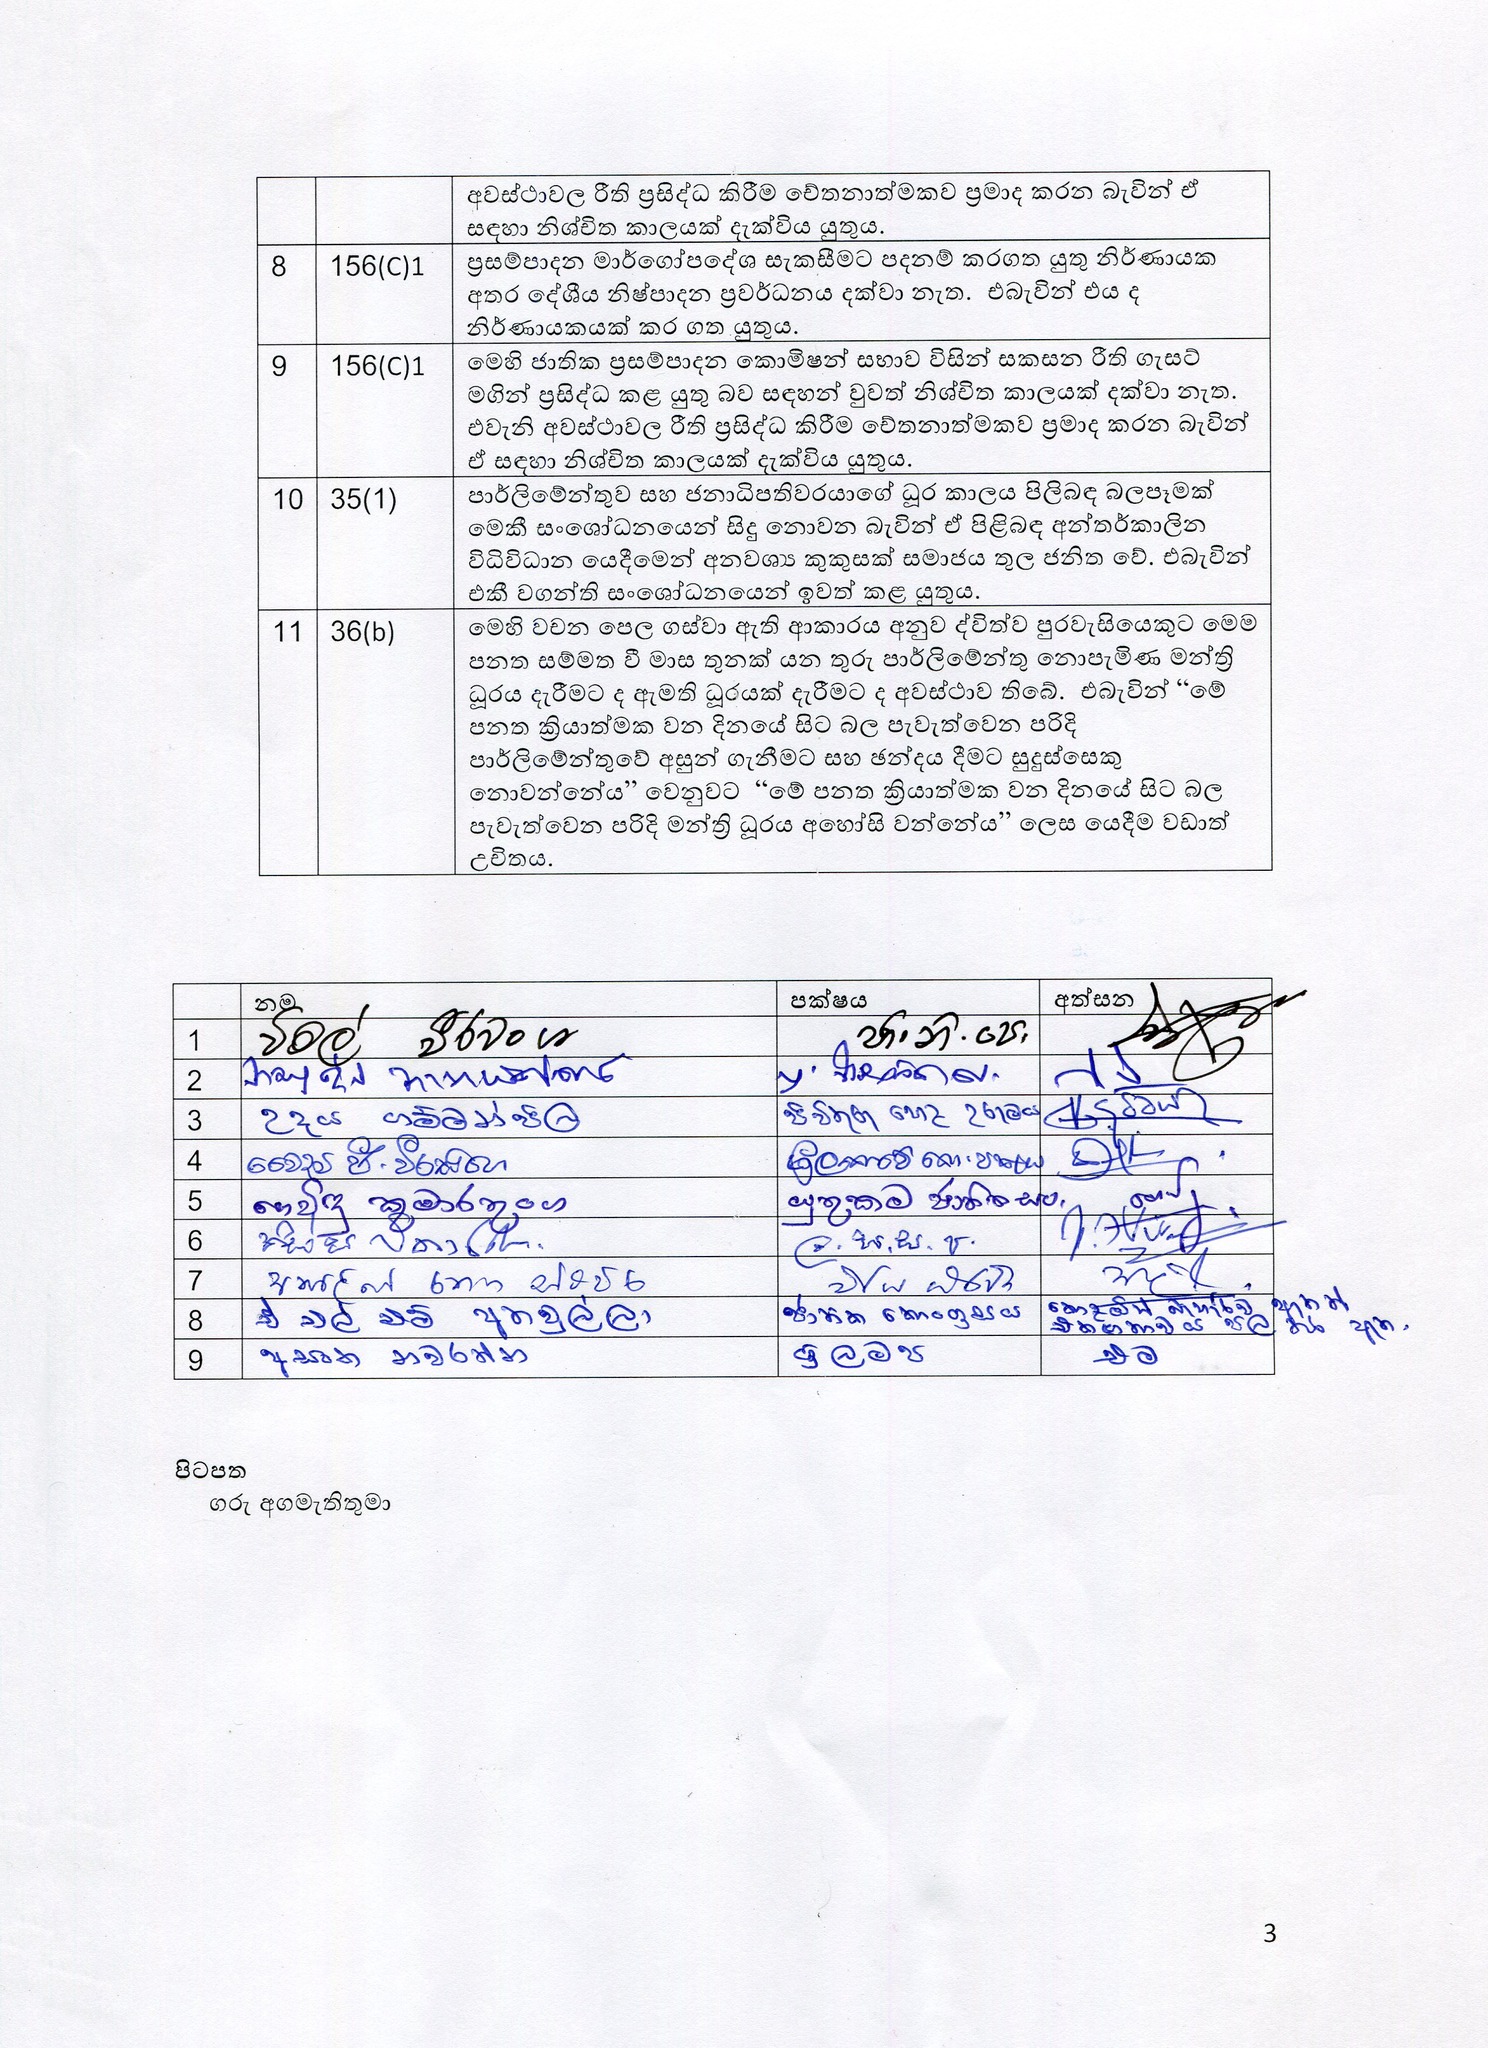 අවස්ථාවල රීති ප්‍රසිද්ධ කිරීම චේතනාත්මකව ප්‍රමාද කරන බැවින් ඒ
සඳහා නිශ්චිත කාලයක් දැක්විය යුතුය.
8 156(C)1 ප්‍රසම්පාදන මාර්ගෝපදේශ සැකසීමට පදනම් කරගත යුතු නිර්ණායක
අතර දේශීය නිෂ්පාදන ප්‍රවර්ධනය දක්වා නැත. එබැවින් එය ද
නිර්ණායකයක් කර ගත යුතුය.
9 156(C)1 මෙහි ජාතික ප්‍රසම්පාදන කොමිෂන් සභාව විසින් සකසන රීති ගැසට්
මගින් ප්‍රසිද්ධ කළ යුතු බව සඳහන් වුවත් නිශ්චිත කාලයක් දක්වා නැත.
එවැනි අවස්ථාවල රීති ප්‍රසිද්ධ කිරීම චේතනාත්මකව ප්‍රමාද කරන බැවින්
ඒ සඳහා නිශ්චිත කාලයක් දැක්විය යුතුය.
10 35(1) පාර්ලිමේන්තුව සහ ජනාධිපතිවරයාගේ ධූර කාලය පිලිබඳ බලපෑමක්
මෙකී සංශෝධනයෙන් සිදු නොවන බැවින් ඒ පිළිබඳ අන්තර්කාලින
විධිවිධාන යෙදීමෙන් අනවශ්‍ය කුකුසක් සමාජය තුල ජනිත වේ. එබැවින්
එකී වගන්ති සංශෝධනයෙන් ඉවත් කළ යුතුය.
11 36(b) මෙහි වචන පෙල ගස්වා ඇති ආකාරය අනුව ද්විත්ව පුරවැසියෙකුට මෙම
පනත සම්මත වී මාස තුනක් යන තුරු පාර්ලිමේන්තු නොපැමිණ මන්ත්‍රි
ධූරය දැරීමට ද ඇමති ධූරයක් දැරීමට ද අවස්ථාව තිබේ. එබැවින් “මේ
පනත ක්‍රියාත්මක වන දිනයේ සිට බල පැවැත්වෙන පරිදි
පාර්ලිමේන්තුවේ අසුන් ගැනීමට සහ ඡන්දය දීමට සුදුස්සෙකු
නොවන්නේය” වෙනුවට “මේ පනත ක්‍රියාත්මක වන දිනයේ සිට බල
පැවැත්වෙන පරිදි මන්ත්‍රි ධූරය අහෝසි වන්නේය” ලෙස යෙදීම වඩාත්
උචිතය.
නම පක්ෂය අත්සන
1 විමල් වීරවංශ ජා.නි.පෙ.
2 වාසුදේව නානායක්කාර
3 උදය ගම්මන්පිල පිවිතුරු හෙළ උරුමය
4 වීරසිංහ
5 ගෙවිඳු කුමාරතුංග යුතුකම
6 තිස්ස විතාරණ ල.ස.ස.ප.
7 අතුරලියේ රතන
8 ඒ එල් එම් අතාවුල්ලා ජාතික කොංග්‍රසය
9 අසංක නවරත්න ශ්‍රී ල ම ප එම
පිටපත
ගරු අගමැතිතුමා
3